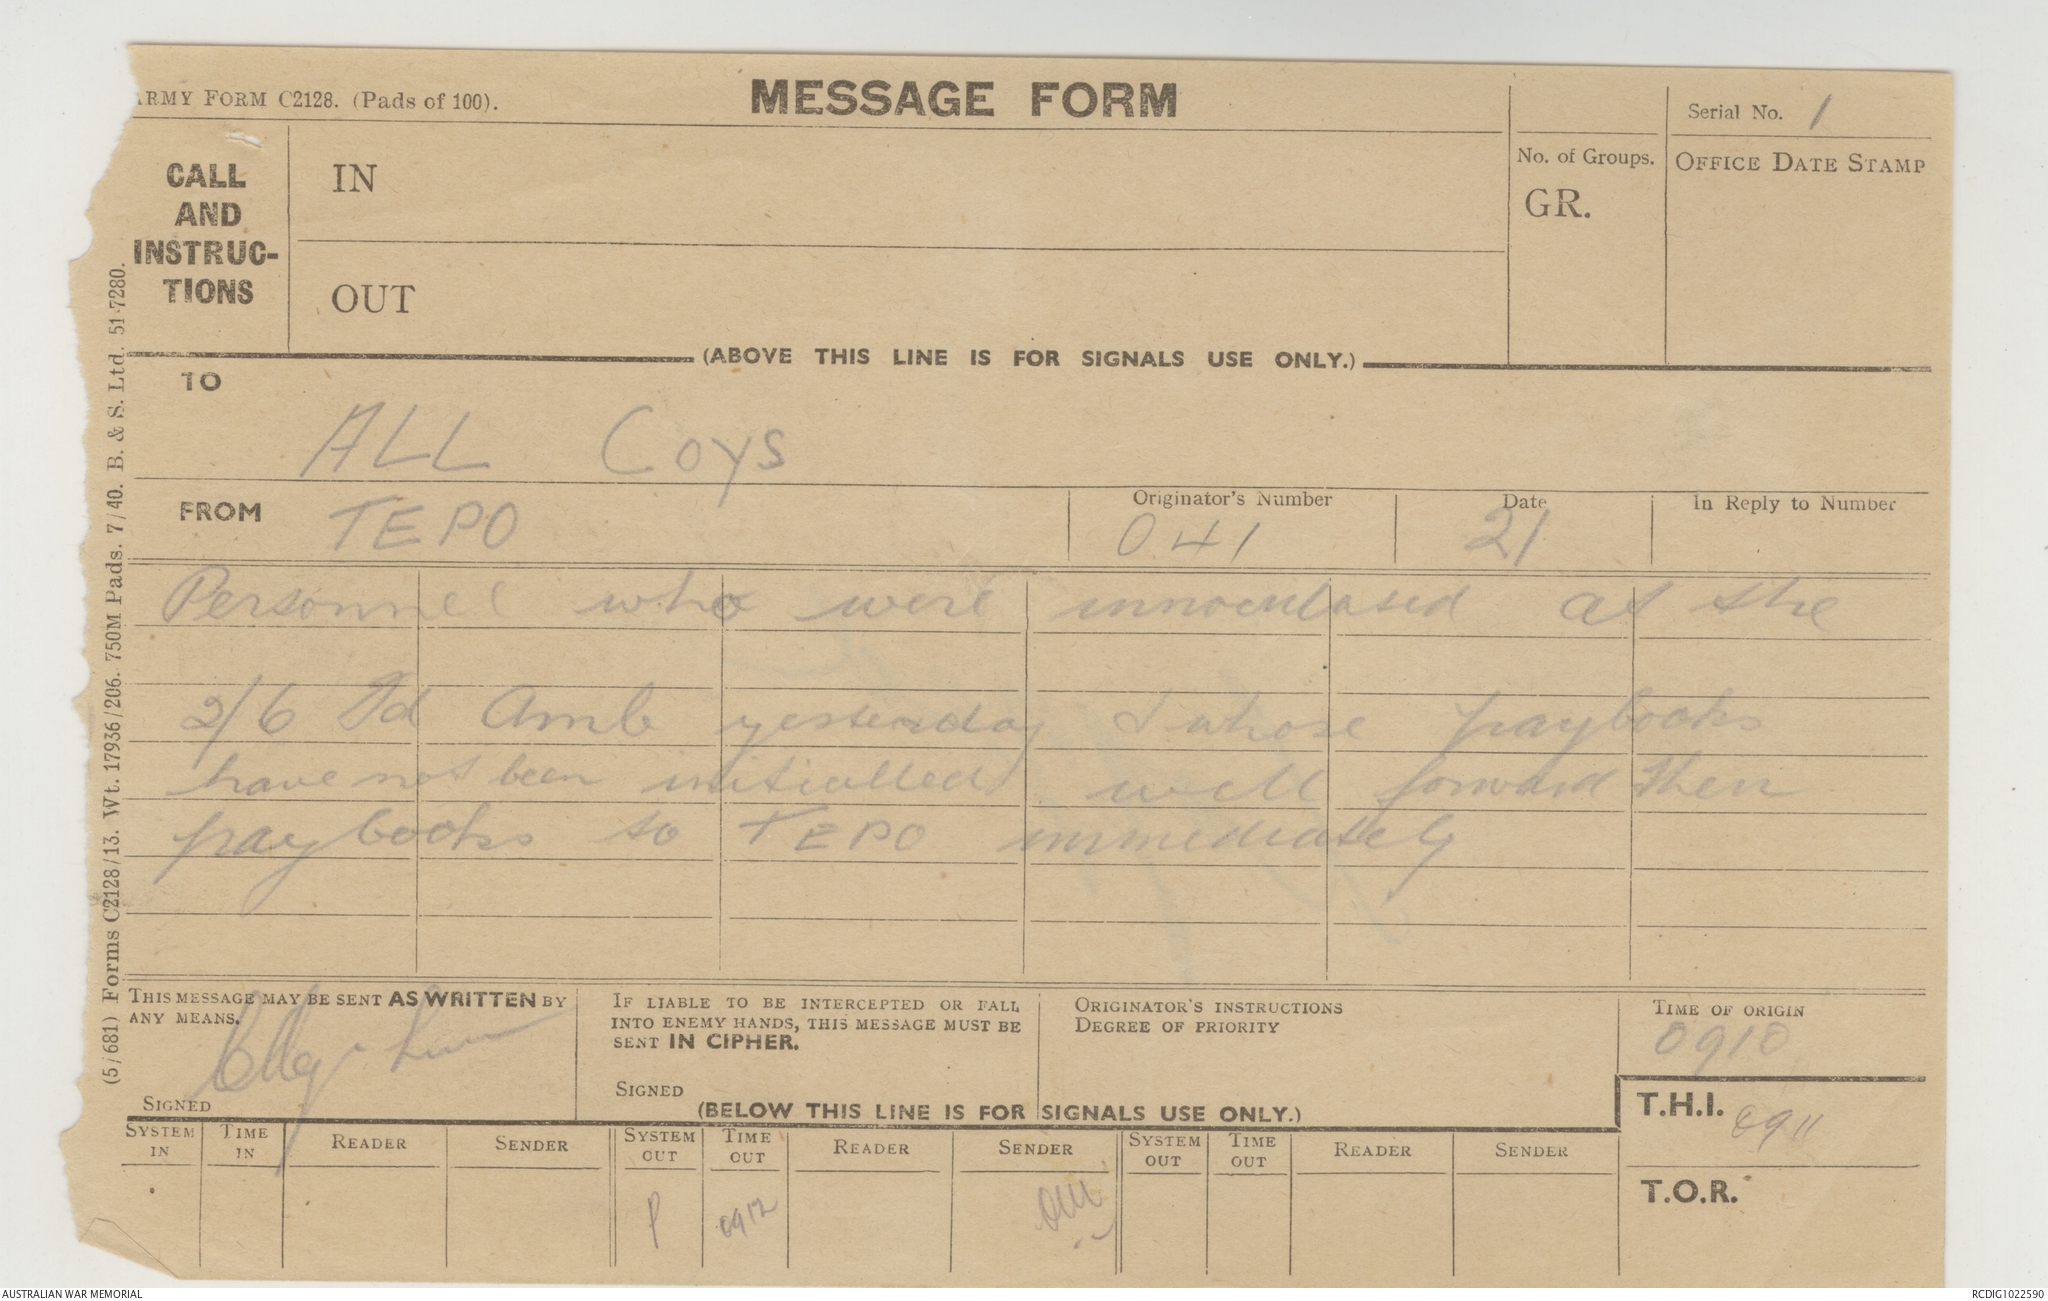 ARMY FORM C2128. (Pads of 100).
MESSAGE FORM
Serial No. 1
CALL
AND
INSTRUC-
TIONS
IN
OUT
No. of Groups.
GR.
OFFICE DATE STAMP
(ABOVE THIS LINE IS FOR SIGNALS USE ONLY.)
TO
ALL Coys
FROM
TEPO
Originator's Number
041
Date
21
In Reply to Number
Personnel who were innoculased at the
2/6 Fd Amb yesterday & whose paybooks
have not been initialled will forward their
paybooks to TEPO immediately
THIS MESSAGE MAY BE SENT AS WRITTEN BY
ANY MEANS.
SIGNED
IF LIABLE TO BE INTERCEPTED OR FALL
INTO ENEMY HANDS, THIS MESSAGE MUST BE
SENT IN CIPHER.
SIGNED
ORIGINATOR'S INSTRUCTIONS
DEGREE OF PRIORITY
TIME OF ORIGIN
0910
(BELOW THIS LINE IS FOR SIGNALS USE ONLY.)
T.H.I. 0911
SYSTEM IN
TIME IN
READER
SENDER
SYSTEM OUT
TIME OUT
READER
SENDER
SYSTEM OUT
TIME OUT
READER
SENDER
T.O.R.
P
0912
(5/681) Forms C2128/13. Wt. 17936/206. 750M Pads. 7/40. B. & S. Ltd. 51-7280.
AUSTRALIAN WAR MEMORIAL
RCDIG1022590